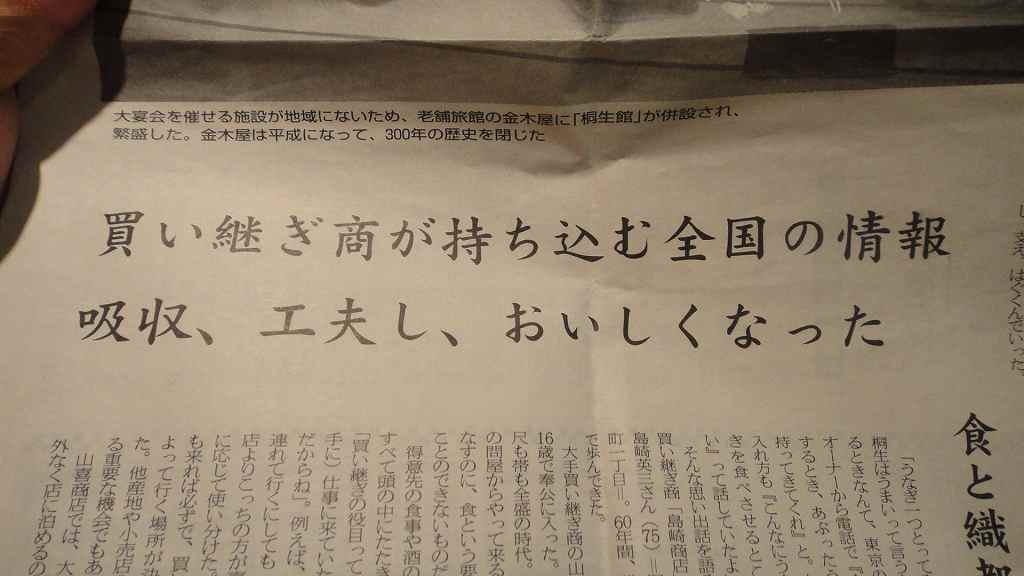 大宴会を催せる施設が地域にないため、老舗旅館の金木屋に「桐生館」が併設され、
繁盛した。金木屋は平成になって、300年の歴史を閉じた
買い継ぎ商が持ち込む全国の情報
吸収、工夫し、おいしくなった
はぐくんでいった。
食と織都
「うなぎ一つとって
桐生はうまいって言う
るときなんて、東京の
オーナーから電話で『
するとき、あぶったう
持ってきてくれ』と。
入れ方も『こんなにう
ぎを食べさせると
い』って話していたよ
そんな思い出話を語る
買い継ぎ商「島崎商店
島崎英三さん（75）＝
町一丁目＝。60年間、
で歩んできた。
大手買い継ぎ商の山
16歳で奉公に入った。
尺も帯も全盛の時代。
の問屋からやって来る
なすのに、食という要
ことのできないものだ
得意先の食事や酒の
すべて頭の中にたたき
「買い継ぎの役目って
手に）仕事に来ていた
だからね」。例えば、
連れて行くにしても
店よりこっちの方が
に応じて使い分けた。
も来れば必ずで、買い
よって行く場所が
た。他産地や小売店
る重要な機会でもあ
山喜商店では、大
外なく店に泊めるの